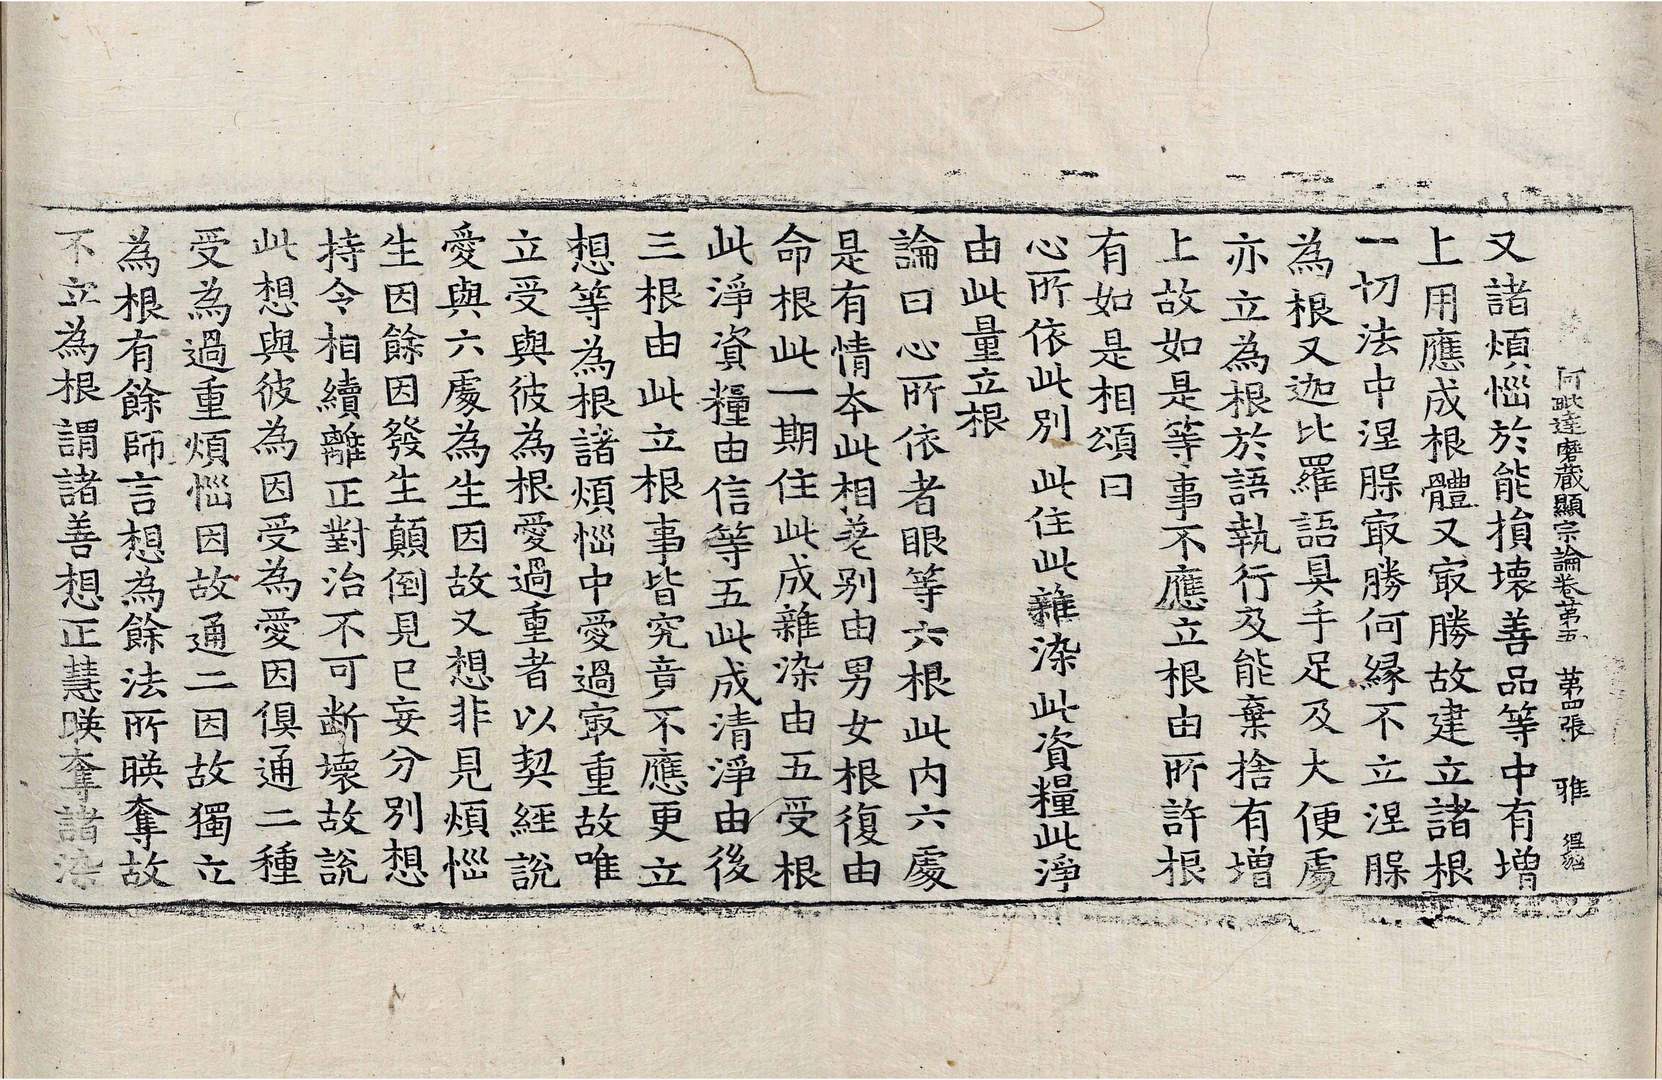 阿毗達磨藏顯宗論卷第五　第四張　雅
又諸煩惱於能損壞善品等中有增
上用應成根體又㝡勝故建立諸根
一切法中涅脲㝡勝何縁不立涅脲
為根又迦比羅語具手足及大便處
亦立為根於語執行及能棄捨有增
上故如是等事不應立根由所許根
有如是相頌曰
心所依此別　此住此雜染　此資糧此淨
由此量立根
論曰心所依者眼等六根此内六處
是有情夲此相差别由男女根復由
命根此一期住此成雜染由五受根
此淨資糧由信等五此成清淨由後
三根由此立根事皆究竟不應更立
想等為根諸煩惱中愛過㝡重故唯
立受與彼為根愛過重者以契經說
愛與六處為生因故又想非見煩惱
生因餘因發生顛倒見已妄分別想
持令相續離正對治不可断壞故說
此想與彼為因受為愛因俱通二種
受為過重煩惱因故通二因故獨立
為根有餘師言想為餘法所暎奪故
不立為根謂諸善想正慧暎奪諸染